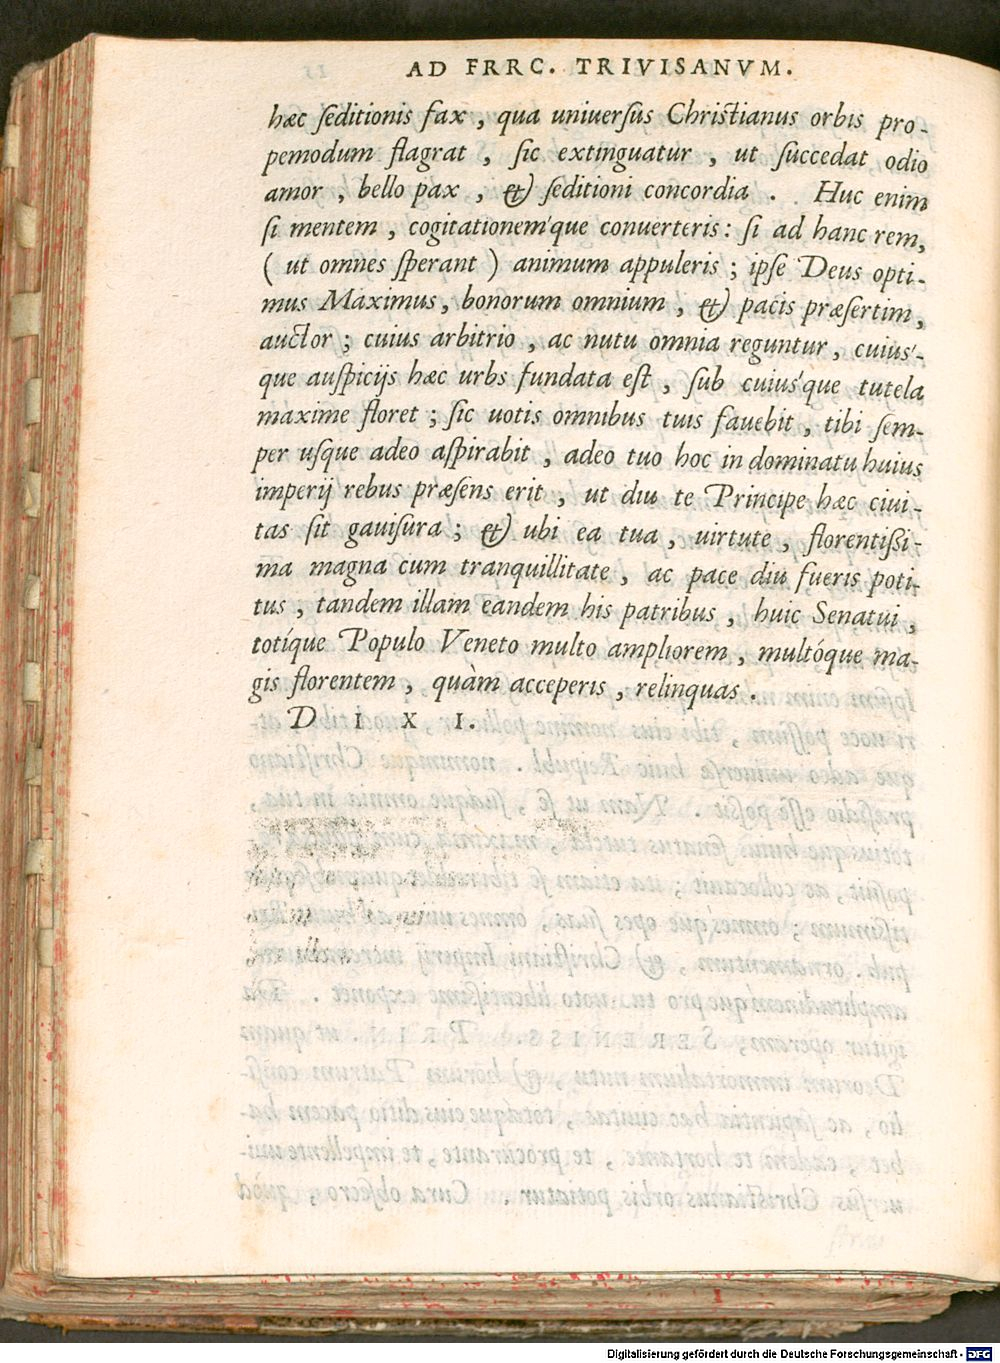 AD FRRC. TRIVISANVM.
hæc ſeditionis fax, qua uniuerſus Christianus orbis pro-
pemodum flagrat, ſic extinguatur, ut ſuccedat odio
amor, bello pax, & ſeditioni concordia. Huc enim
ſi mentem, cogitationem'que conuerteris: ſi ad hanc rem,
(ut omnes ſperant) animum appuleris; ipſe Deus opti-
mus Maximus, bonorum omnium, & pacis præſertim,
auctor; cuius arbitrio, ac nutu omnia reguntur, cuius'-
que auſpicijs hæc urbs fundata eſt, ſub cuius'que tutela
maxime floret; ſic uotis omnibus tuis fauebit, tibi ſem-
per uſque adeo aſpirabit, adeo tuo hoc in dominatu huius
imperij rebus præſens erit, ut diu te Principe hæc ciui-
tas ſit gauiſura; & ubi ea tua, uirtute, florentißi-
ma magna cum tranquillitate, ac pace diu fueris poti-
tus, tandem illam eandem his patribus, huic Senatui,
totíque Populo Veneto multo ampliorem, multóque ma-
gis florentem, quàm acceperis, relinquas.
D I X I.
Digitalisierung gefördert durch die Deutsche Forschungsgemeinschaft - DFG